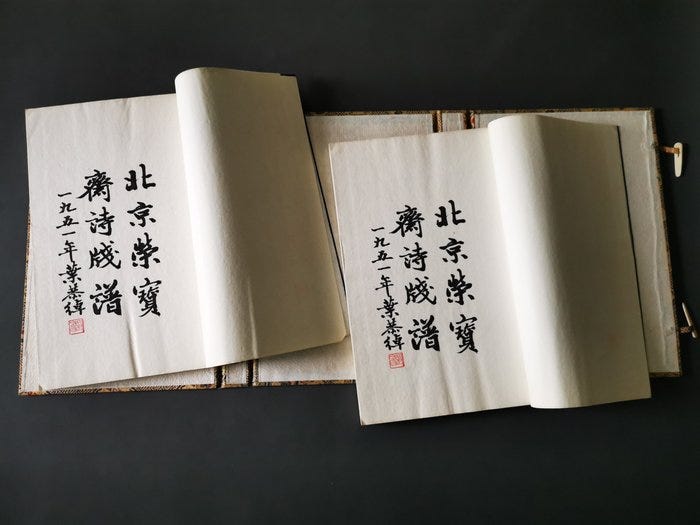 北京榮寶
齋詩牋譜
一九五一年葉恭綽
北京榮寶
齋詩牋譜
一九五一年葉恭綽